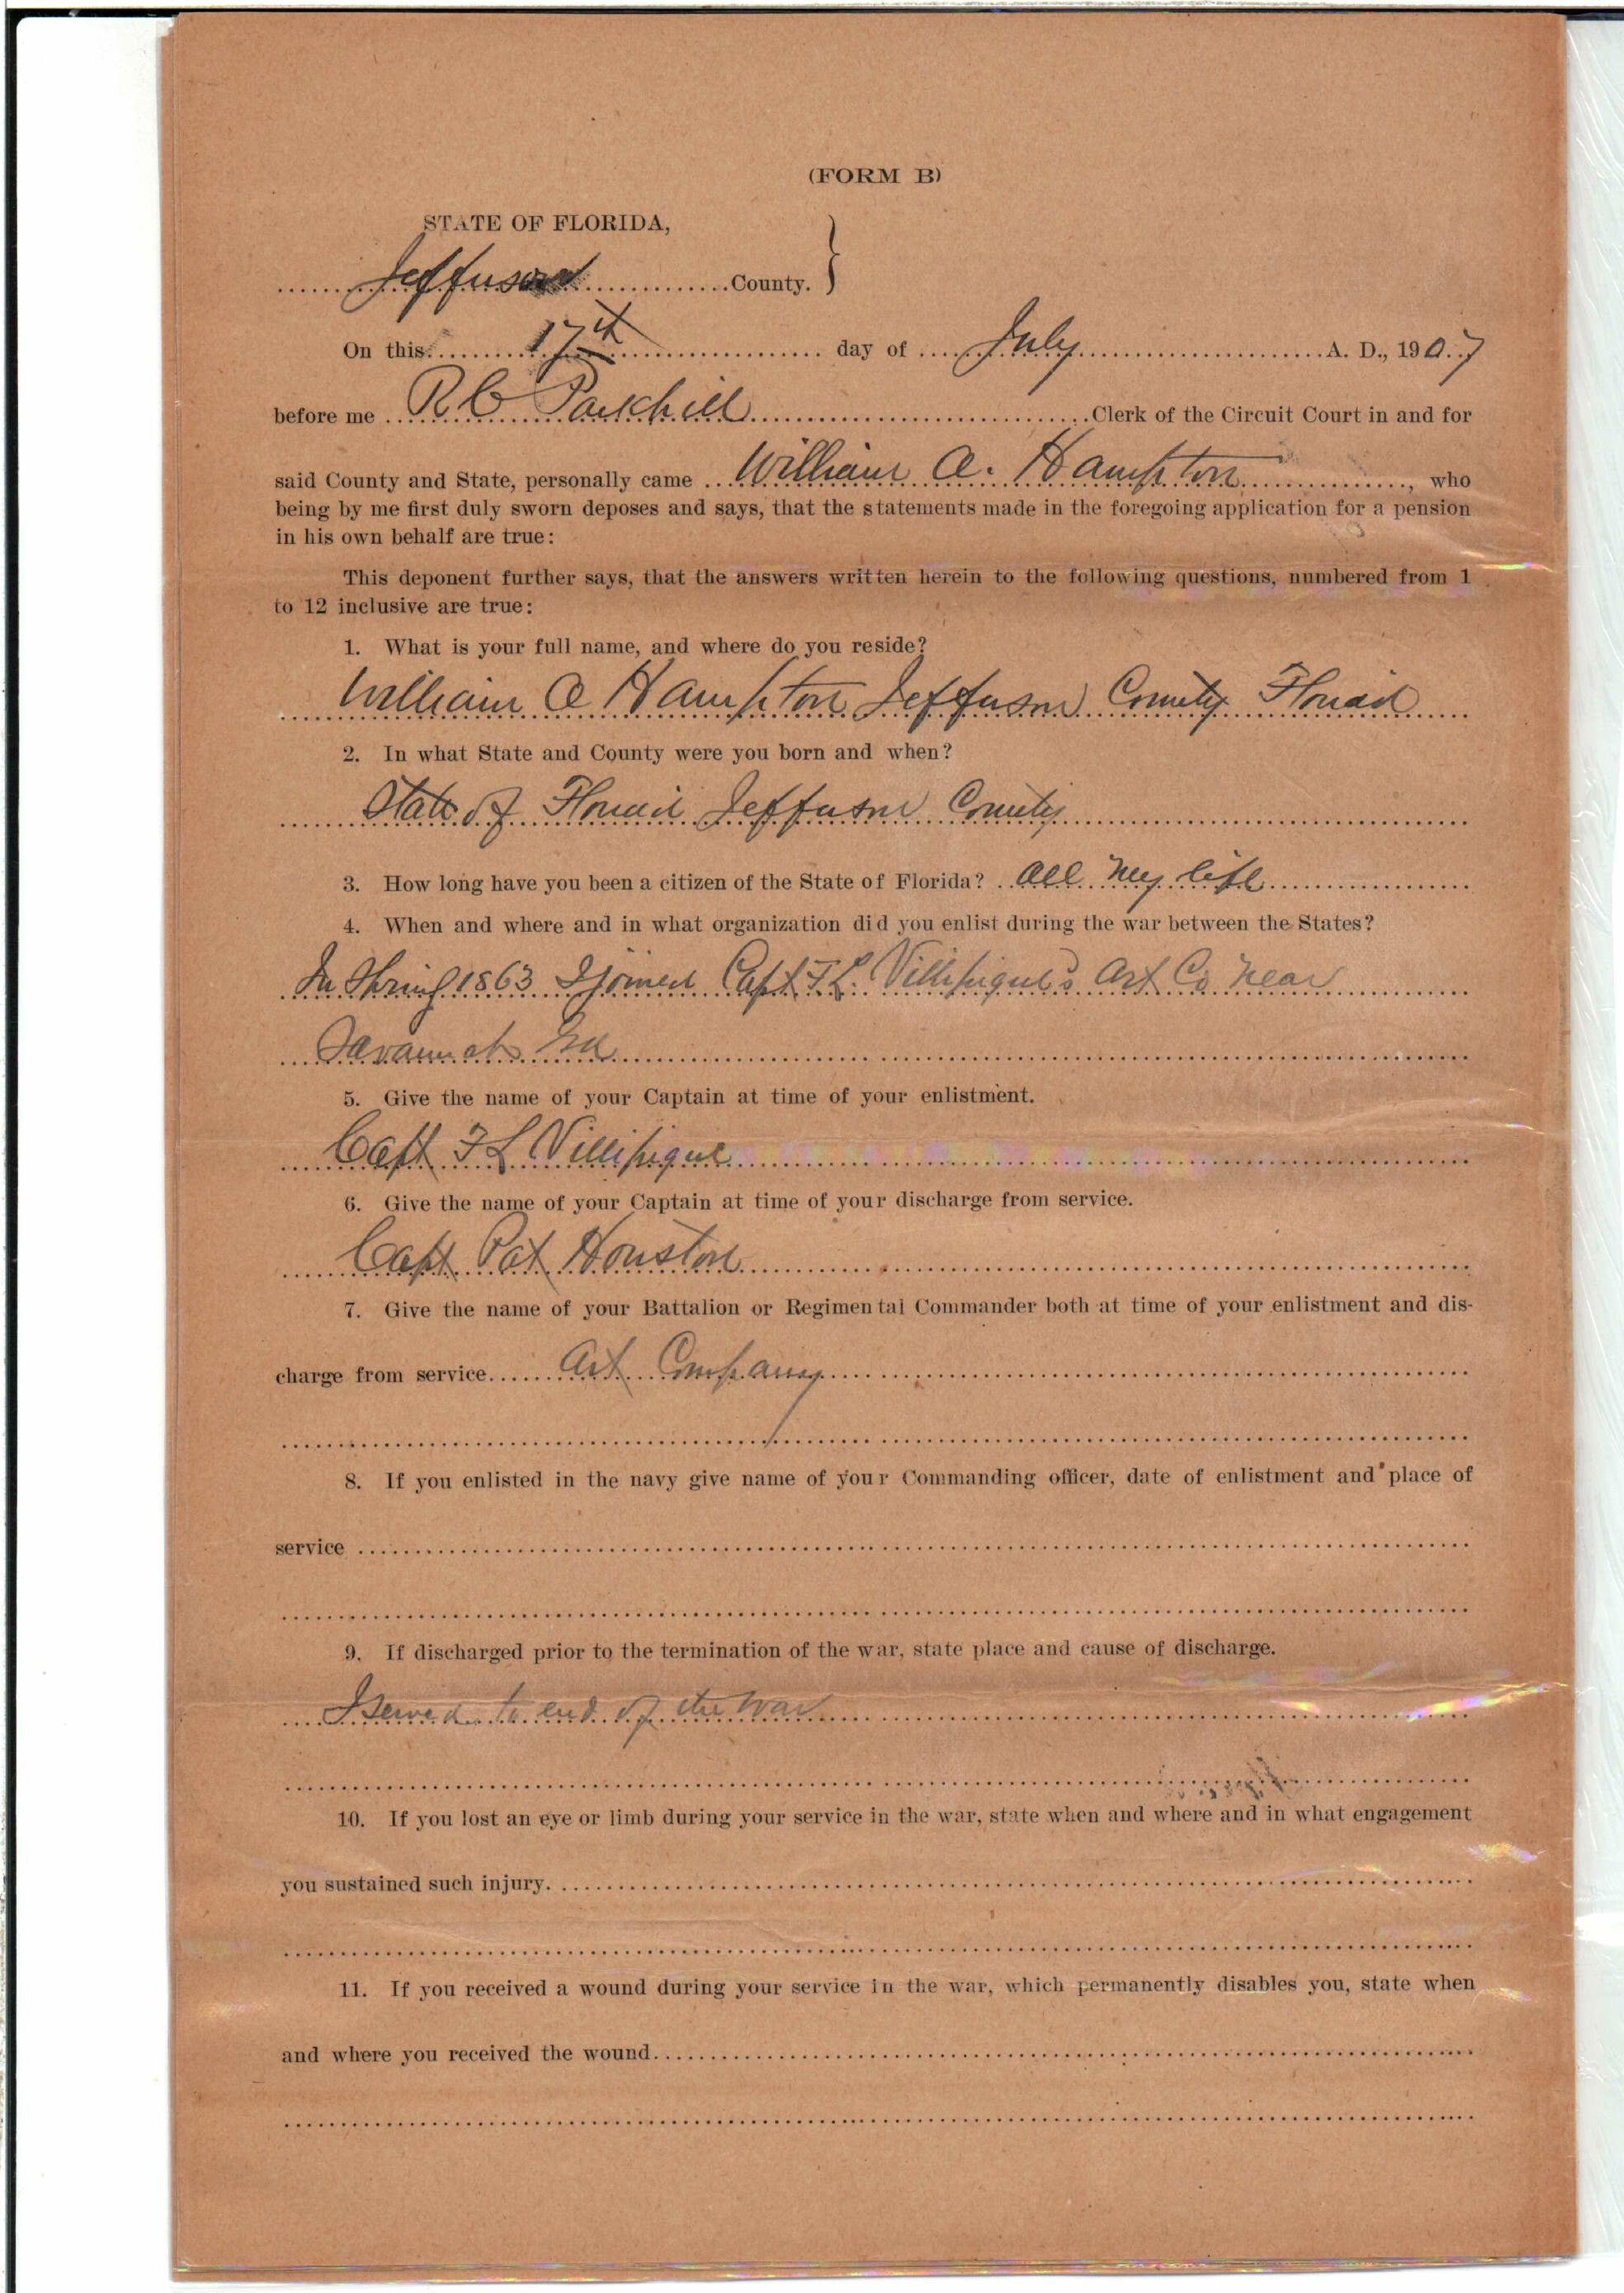 (FORM B)
STATE OF FLORIDA,
Jefferson County.
On this 17th day of July A. D., 1907
before me R C Parkhill Clerk of the Circuit Court in and for
said County and State, personally came William A. Hampton, who
being by me first duly sworn deposes and says, that the statements made in the foregoing application for a pension
in his own behalf are true:
This deponent further says, that the answers written herein to the following questions, numbered from 1
to 12 inclusive are true:
1. What is your full name, and where do you reside?
William A Hampton Jefferson County Florida
2. In what State and County were you born and when?
State of Florida Jefferson County
3. How long have you been a citizen of the State of Florida? All my life
4. When and where and in what organization did you enlist during the war between the States?
In Spring 1863 I joined Capt F. L. Villipigue's Art Co near
Savannah Ga
5. Give the name of your Captain at time of your enlistment.
Capt F L Villipigue
6. Give the name of your Captain at time of your discharge from service.
Capt Pat Houston
7. Give the name of your Battalion or Regimental Commander both at time of your enlistment and dis-
charge from service Art Company
8. If you enlisted in the navy give name of your Commanding officer, date of enlistment and place of
service
9. If discharged prior to the termination of the war, state place and cause of discharge.
I served to end of the war
10. If you lost an eye or limb during your service in the war, state when and where and in what engagement
you sustained such injury.
11. If you received a wound during your service in the war, which permanently disables you, state when
and where you received the wound